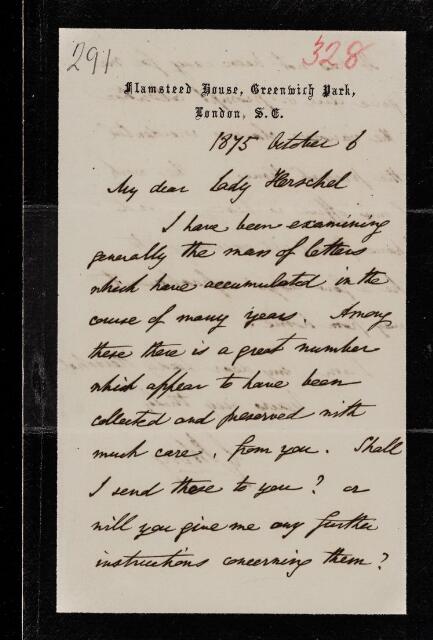 291
328
Flamsteed House, Greenwich Park,
London, S.E.
1875 October 6
My dear Lady Herschel
I have been examining
generally the mass of letters
which have accumulated in the
course of many years. Among
these there is a great number
which appear to have been
collected and preserved with
much care, from you. Shall
I send these to you? or
will you give me any further
instructions concerning them?